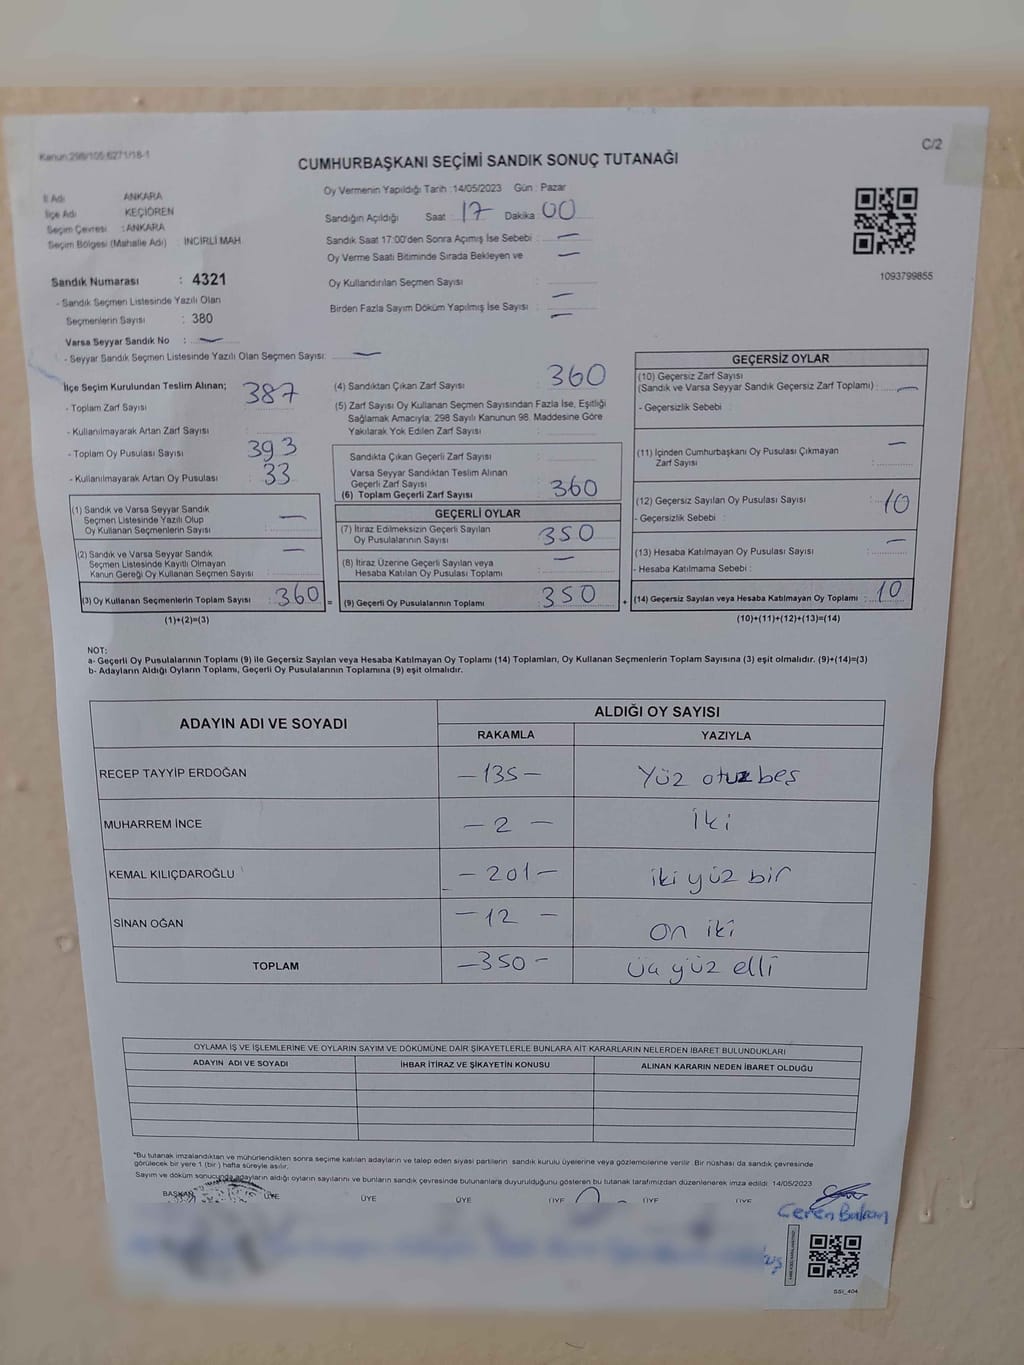 Kanun:298/105;6271/18-1
C/2
CUMHURBAŞKANI SEÇİMİ SANDIK SONUÇ TUTANAĞI
İl Adı ANKARA
İlçe Adı KEÇİÖREN
Seçim Çevresi : ANKARA
Seçim Bölgesi (Mahalle Adı) : İNCİRLİ MAH
Oy Vermenin Yapıldığı Tarih :14/05/2023 Gün : Pazar
Sandığın Açıldığı Saat 17 Dakika 00
Sandık Saat 17:00'den Sonra Açımış İse Sebebi : —
Oy Verme Saati Bitiminde Sırada Bekleyen ve —
Oy Kullandırılan Seçmen Sayısı :
Birden Fazla Sayım Döküm Yapılmış İse Sayısı : —
1093799855
Sandık Numarası : 4321
- Sandık Seçmen Listesinde Yazılı Olan
Seçmenlerin Sayısı : 380
Varsa Seyyar Sandık No : —
- Seyyar Sandık Seçmen Listesinde Yazılı Olan Seçmen Sayısı: —
İlçe Seçim Kurulundan Teslim Alınan;
- Toplam Zarf Sayısı 387
- Kullanılmayarak Artan Zarf Sayısı
- Toplam Oy Pusulası Sayısı 393
- Kullanılmayarak Artan Oy Pusulası 33
(1) Sandık ve Varsa Seyyar Sandık
Seçmen Listesinde Yazılı Olup
Oy Kullanan Seçmenlerin Sayısı : —
(2) Sandık ve Varsa Seyyar Sandık
Seçmen Listesinde Kayıtlı Olmayan
Kanun Gereği Oy Kullanan Seçmen Sayısı : —
(3) Oy Kullanan Seçmenlerin Toplam Sayısı : 360 =
(1)+(2)=(3)
(4) Sandıktan Çıkan Zarf Sayısı : 360
(5) Zarf Sayısı Oy Kullanan Seçmen Sayısından Fazla İse, Eşitliği
Sağlamak Amacıyla; 298 Sayılı Kanunun 98. Maddesine Göre
Yakılarak Yok Edilen Zarf Sayısı :
Sandıkta Çıkan Geçerli Zarf Sayısı :
Varsa Seyyar Sandıktan Teslim Alınan
Geçerli Zarf Sayısı :
(6) Toplam Geçerli Zarf Sayısı : 360
GEÇERLİ OYLAR
(7) İtiraz Edilmeksizin Geçerli Sayılan
Oy Pusulalarının Sayısı : 350
(8) İtiraz Üzerine Geçerli Sayılan veya
Hesaba Katılan Oy Pusulası Toplamı : —
(9) Geçerli Oy Pusulalarının Toplamı : 350 +
GEÇERSİZ OYLAR
(10) Geçersiz Zarf Sayısı
(Sandık ve Varsa Seyyar Sandık Geçersiz Zarf Toplamı) : —
- Geçersizlik Sebebi :
(11) İçinden Cumhurbaşkanı Oy Pusulası Çıkmayan —
Zarf Sayısı :
(12) Geçersiz Sayılan Oy Pusulası Sayısı : 10
- Geçersizlik Sebebi :
(13) Hesaba Katılmayan Oy Pusulası Sayısı : —
- Hesaba Katılmama Sebebi :
(14) Geçersiz Sayılan veya Hesaba Katılmayan Oy Toplamı : 10
(10)+(11)+(12)+(13)=(14)
NOT:
a- Geçerli Oy Pusulalarının Toplamı (9) ile Geçersiz Sayılan veya Hesaba Katılmayan Oy Toplamı (14) Toplamları, Oy Kullanan Seçmenlerin Toplam Sayısına (3) eşit olmalıdır. (9)+(14)=(3)
b- Adayların Aldığı Oyların Toplamı, Geçerli Oy Pusulalarının Toplamına (9) eşit olmalıdır.
ADAYIN ADI VE SOYADI ALDIĞI OY SAYISI
RAKAMLA YAZIYLA
RECEP TAYYİP ERDOĞAN —135— Yüz otuz beş
MUHARREM İNCE — 2 — İki
KEMAL KILIÇDAROĞLU — 201— iki yüz bir
SİNAN OĞAN — 12 — on iki
TOPLAM —350— üç yüz elli
OYLAMA İŞ VE İŞLEMLERİNE VE OYLARIN SAYIM VE DÖKÜMÜNE DAİR ŞİKAYETLERLE BUNLARA AİT KARARLARIN NELERDEN İBARET BULUNDUKLARI
ADAYIN ADI VE SOYADI İHBAR İTİRAZ VE ŞİKAYETİN KONUSU ALINAN KARARIN NEDEN İBARET OLDUĞU
*Bu tutanak imzalandıktan ve mühürlendikten sonra seçime katılan adayların ve talep eden siyasi partilerin sandık kurulu üyelerine veya gözlemcilerine verilir. Bir nüshası da sandık çevresinde
görülecek bir yere 1 (bir) hafta süreyle asılır.
Sayım ve döküm sonucunda adayların aldığı oyların sayılarını ve bunların sandık çevresinde bulunanlara duyurulduğunu gösteren bu tutanak tarafımızdan düzenlenerek imza edildi. 14/05/2023
BAŞKAN ÜYE ÜYE ÜYE ÜYE ÜYE ÜYE
Ceren
SSİ_404